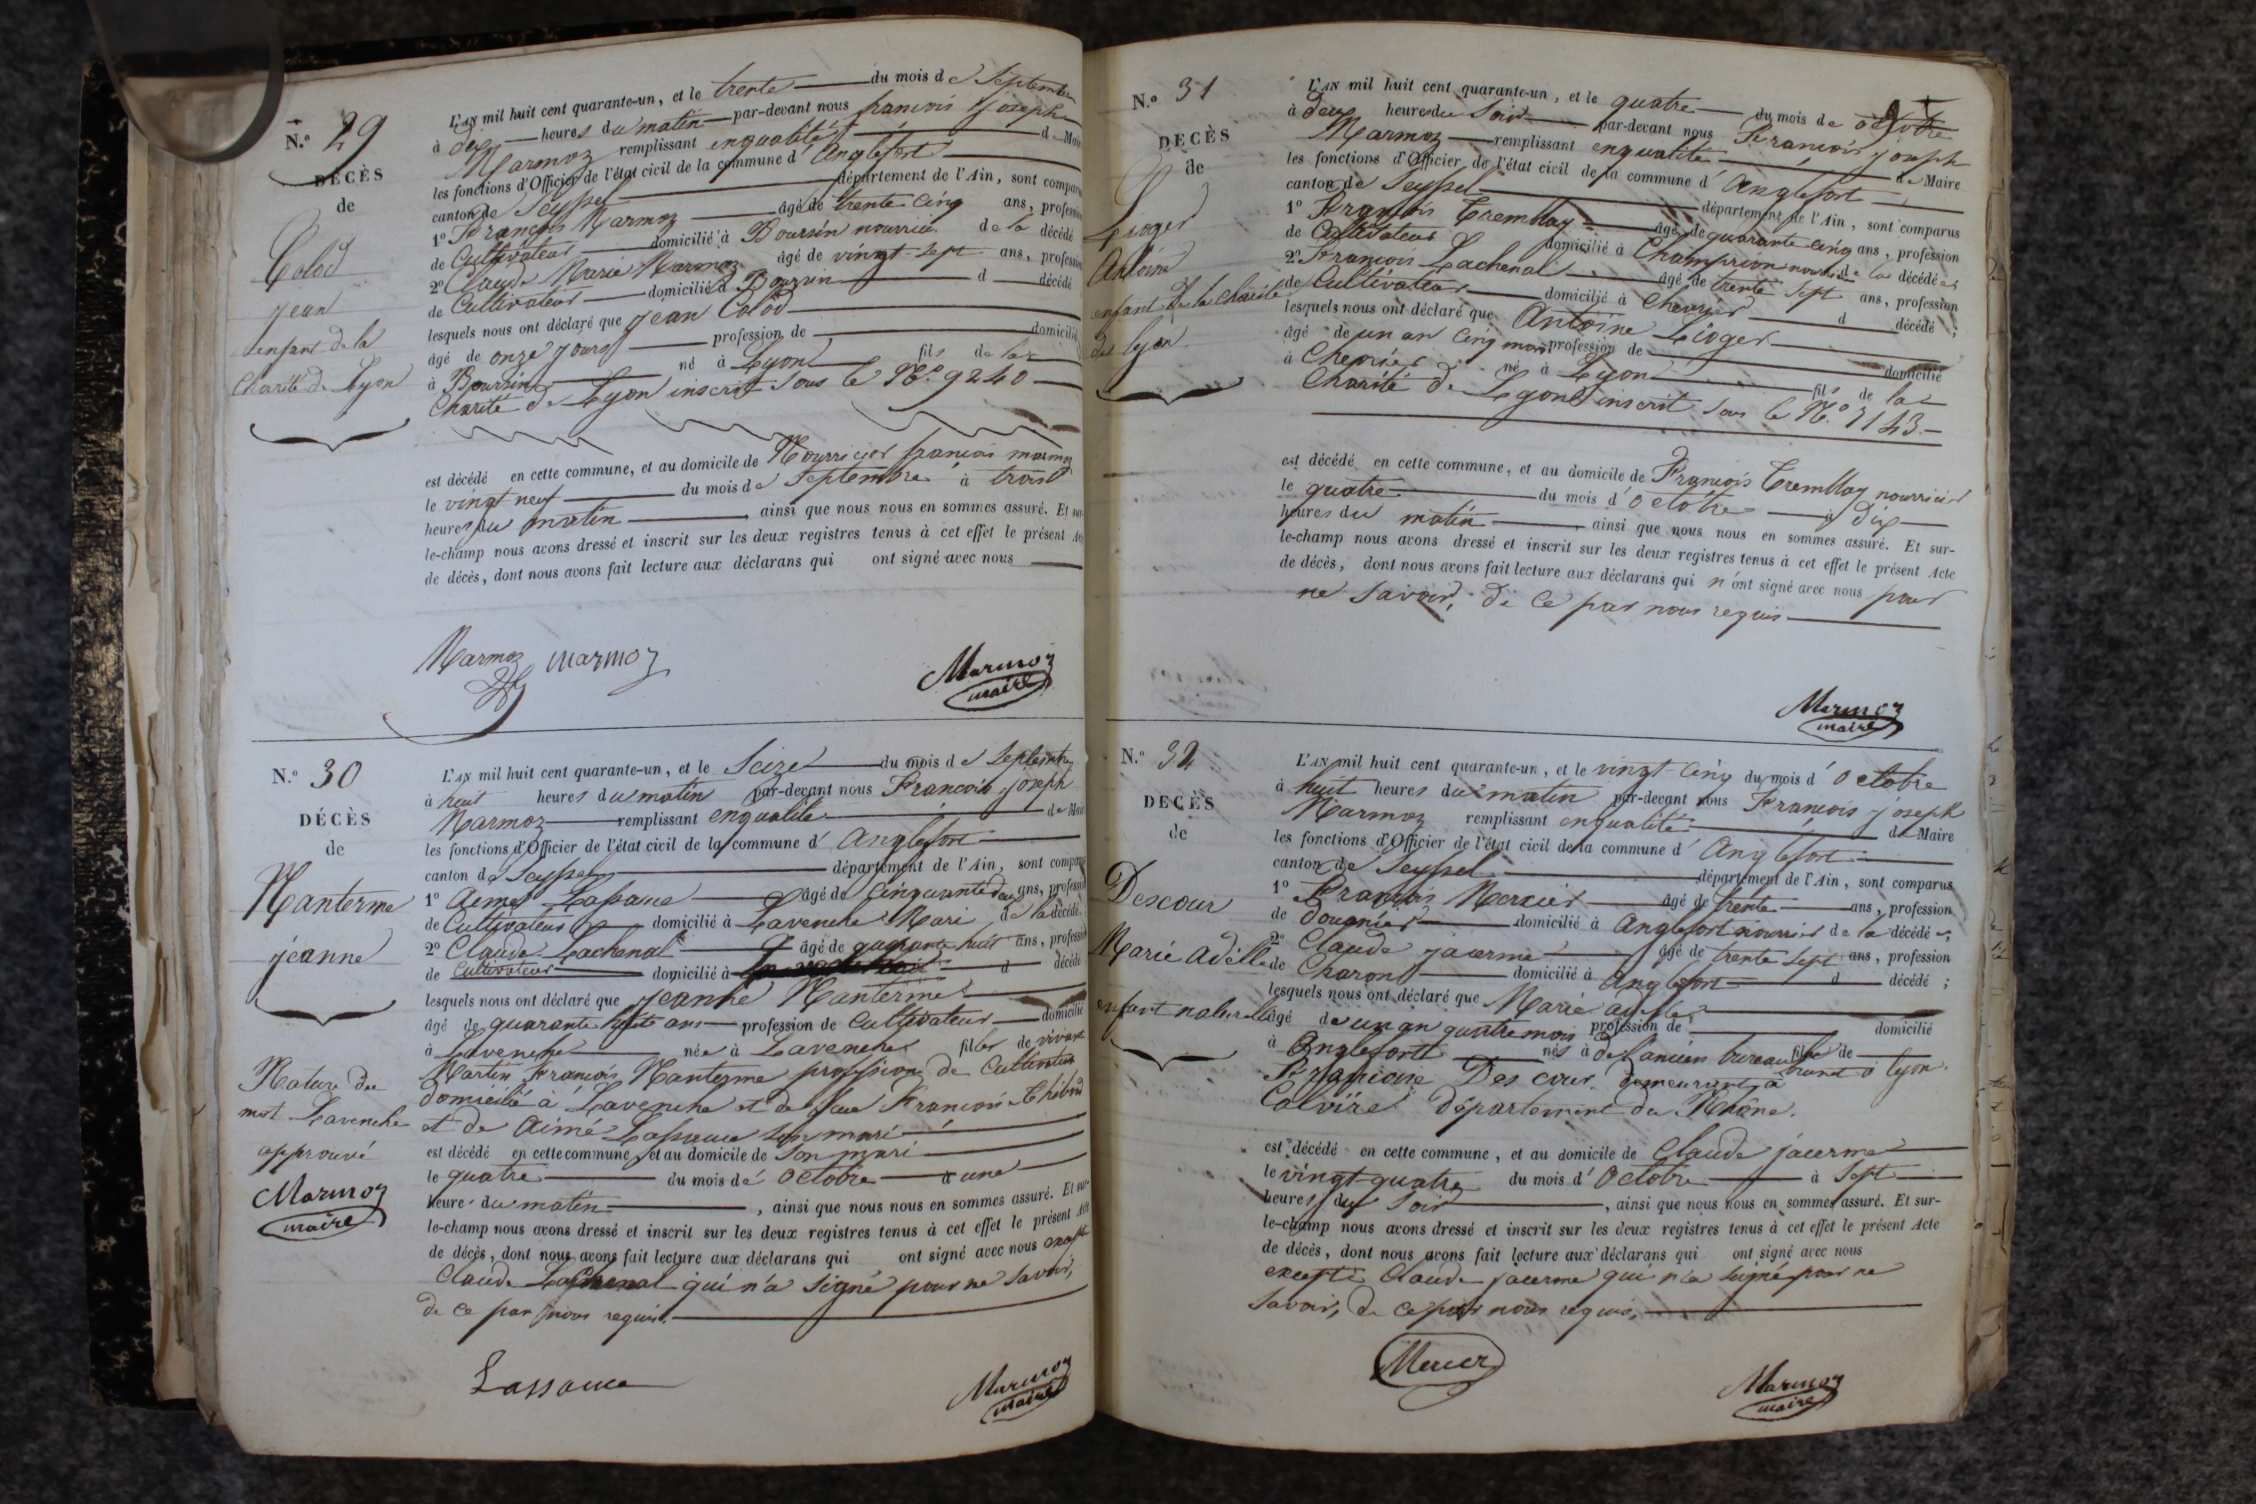 N.º 29
DÉCÈS
de
Colod
jean
enfant de la
Charité de Lyon
L'AN mil huit cent quarante-un, et le trente du mois de Septembre
à dix heures du matin par-devant nous françois joseph
Marmoz remplissant enqualité de Maire
les fonctions d'Officier de l'état civil de la commune d'Anglefort
canton de Seyssel département de l'Ain, sont comparus
1º François Marmoz âgé de trente cinq ans, profession
de Cultivateur domicilié à Boursin nourricier de la décédé
2º Claude Marie Marmoz âgé de vingt-sept ans, profession
de Cultivateur domicilié à Boursin d décédé
lesquels nous ont déclaré que jean Colod
âgé de onze jours profession de domicilié
à Boursin né à Lyon fils de la
Charité de Lyon inscrit sous le Nº. 9240
est décédé en cette commune, et au domicile de Nourricier françois marmoz
le vingt neuf du mois de Septembre à trois
heures du matin, ainsi que nous nous en sommes assuré. Et sur-
le-champ nous avons dressé et inscrit sur les deux registres tenus à cet effet le présent Acte
de décès, dont nous avons fait lecture aux déclarans qui ont signé avec nous
Marmoz marmoz
Marmoz
maire
N.º 30
DÉCÈS
de
Nanterme
jeanne
mot Lavenche
approuvé
Marmoz
maire
L'AN mil huit cent quarante-un, et le Seize du mois de Septembre
à huit heures du matin par-devant nous François joseph
Marmoz remplissant enqualité de Maire
les fonctions d'Officier de l'état civil de la commune d'Anglefort
canton de Seyssel département de l'Ain, sont comparus
1º Aimé Lassauce âgé de Cinquante deux ans, profession
de Cultivateur domicilié à Lavenche Mari de la décédé
2º Claude Lachenal âgé de quarante huit ans, profession
de Cultivateur domicilié à d décédé
lesquels nous ont déclaré que jeanne Nanterme
âgé de quarante huit ans profession de Cultivateur domicilié
à Lavenche née à Lavenche fille de vivant
Martin François Nanterme profession de Cultivateur
domicilié à Lavenche et de
et de Aimé Lassauce son mari
est décédé en cette commune, et au domicile de Son mari
le quatre du mois d'Octobre à une
heure du matin, ainsi que nous nous en sommes assuré. Et sur-
le-champ nous avons dressé et inscrit sur les deux registres tenus à cet effet le présent Acte
de décès, dont nous avons fait lecture aux déclarans qui ont signé avec nous
Claude Lachenal qui n'a signé pour ne savoir,
de ce par nous requis.
Lassauce
Marmoz
maire
N.º 31
DECÈS
de
Lioger
Antoine
enfant de la Charité
de lyon
L'AN mil huit cent quarante-un, et le quatre du mois de octobre
à deux heures du Soir par-devant nous François joseph
Marmoz remplissant enqualité de Maire
les fonctions d'Officier de l'état civil de la commune d'Anglefort
canton de Seyssel département de l'Ain, sont comparus
1º François Tremblay âgé de quarante cinq ans, profession
de Cultivateur domicilié à Champrion de la décédé
2º François Lachenal âgé de trente Sept ans, profession
de Cultivateur domicilié à Chevrier d décédé;
lesquels nous ont déclaré que Antoine Lioger
âgé de un an cinq mois profession de domicilié
à Chevrier né à Lyon fils de la
Charité de Lyon inscrit sous le Nº. 7143
est décédé en cette commune, et au domicile de François Tremblay nourricier
le quatre du mois d'Octobre à dix
heures du matin, ainsi que nous nous en sommes assuré. Et sur-
le-champ nous avons dressé et inscrit sur les deux registres tenus à cet effet le présent Acte
de décès, dont nous avons fait lecture aux déclarans qui n'ont signé avec nous pour
ne Savoir, de ce par nous requis
Marmoz
maire
N.º 32
DECÈS
de
Descour
Marie Adelle
enfant naturelle
L'AN mil huit cent quarante-un, et le vingt-cinq du mois d'octobre
à huit heures du matin par-devant nous François joseph
Marmoz remplissant enqualité de Maire
les fonctions d'Officier de l'état civil de la commune d'Anglefort
canton de Seyssel département de l'Ain, sont comparus
1º François Mercier âgé de trente ans, profession
de Douanier domicilié à Anglefort nourricier de la décédé
2º Claude jacerme âgé de trente sept ans, profession
de Charon domicilié à Anglefort d décédé;
lesquels nous ont déclaré que Marie adelle
âgé de un an quatre mois profession de domicilié
à Anglefort née à de l'ancien bureau fille de
Des cour demeurant à
département du Rhône.
est décédé en cette commune, et au domicile de Claude jacerme
le vingt-quatre du mois d'Octobre à Sept
heures du Soir, ainsi que nous nous en sommes assuré. Et sur-
le-champ nous avons dressé et inscrit sur les deux registres tenus à cet effet le présent Acte
de décès, dont nous avons fait lecture aux déclarans qui ont signé avec nous
excepté Claude jacerme qui n'a signé pour ne
savoir, de ce par nous requis,
Mercier
Marmoz
maire